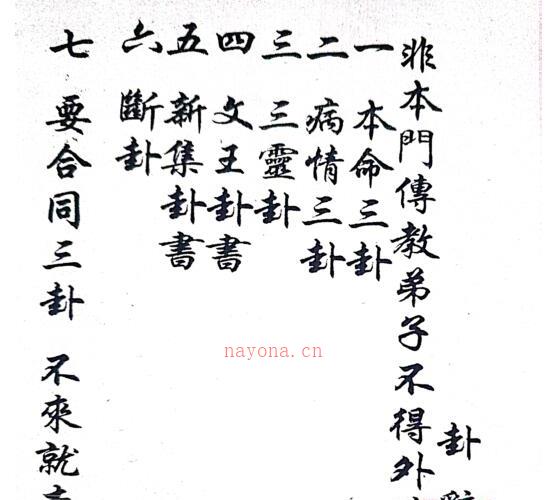 卦
非本門傳教弟子不得外
一 本命三卦
二 病情三卦
三 三靈卦
四 文王卦書
五 新集卦書
六 斷卦
七 要合同三卦 不來就
nayona.cn